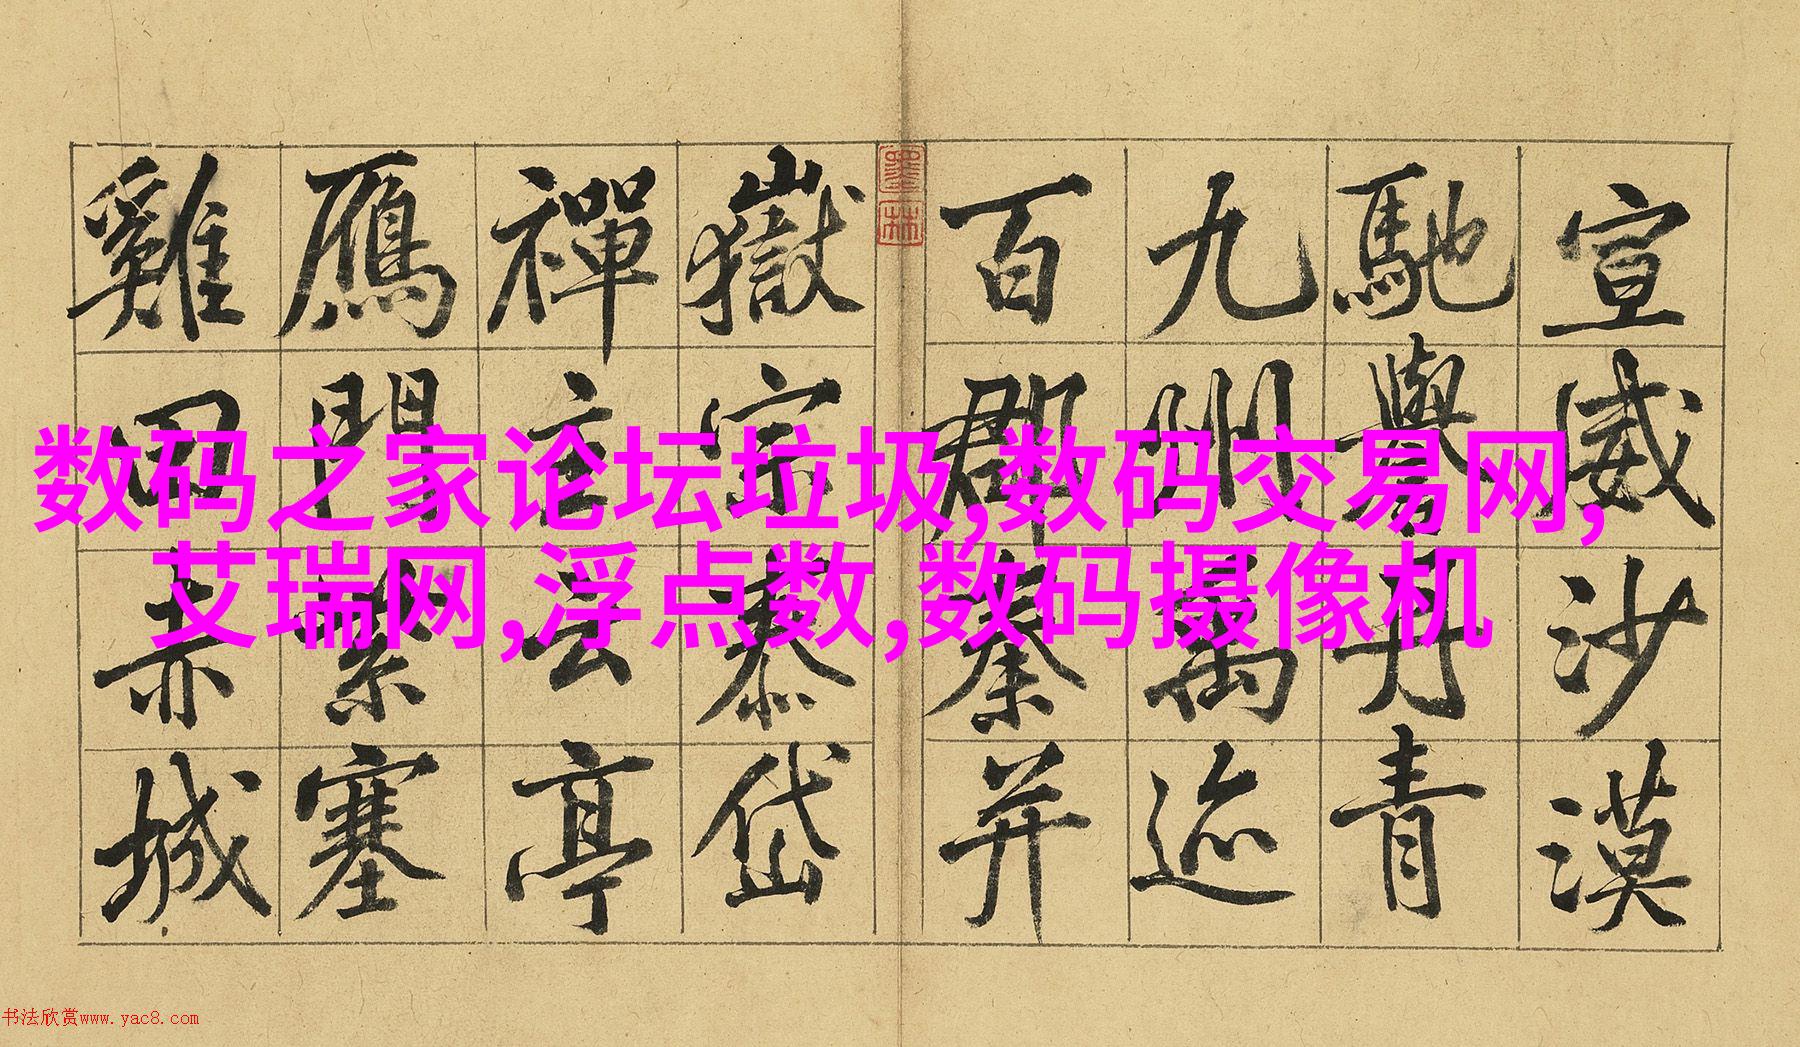 宣威沙漠
馳譽丹青
九州禹迹
百郡秦并
墨林
嶽宗泰岱
禪主云亭
鴈門紫塞
雞田赤城
数码之家论坛垃圾,数码交易网,
艾瑞网,浮点数,数码摄像机
书法欣赏www.yac8.com